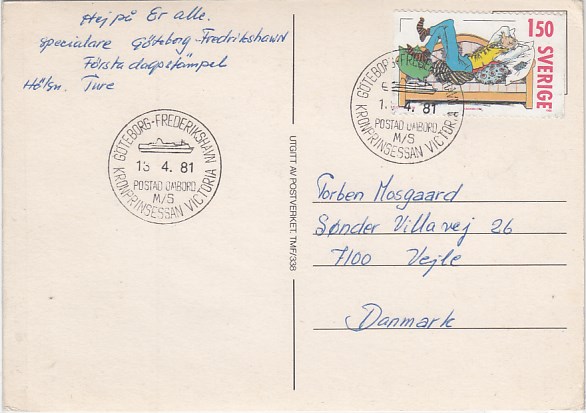 Hej på Er alle.
Specialare Göteborg-Fredrikshavn
Förstadagpstämpel
Hälsn. Ture
GÖTEBORG-FREDERIKSHAVN
13 4. 81
POSTAD OMBORD
M/S
KRONPRINSESSAN VICTORIA
UTGITT AV POSTVERKET. TMF/338
150 SVERIGE
GÖTEBORG-FREDERIKSHAVN
4. 81
POSTAD OMBORD
M/S
KRONPRINSESSAN VICTORIA
Torben Mosgaard
Sønder Villavej 26
7100 Vejle
Danmark